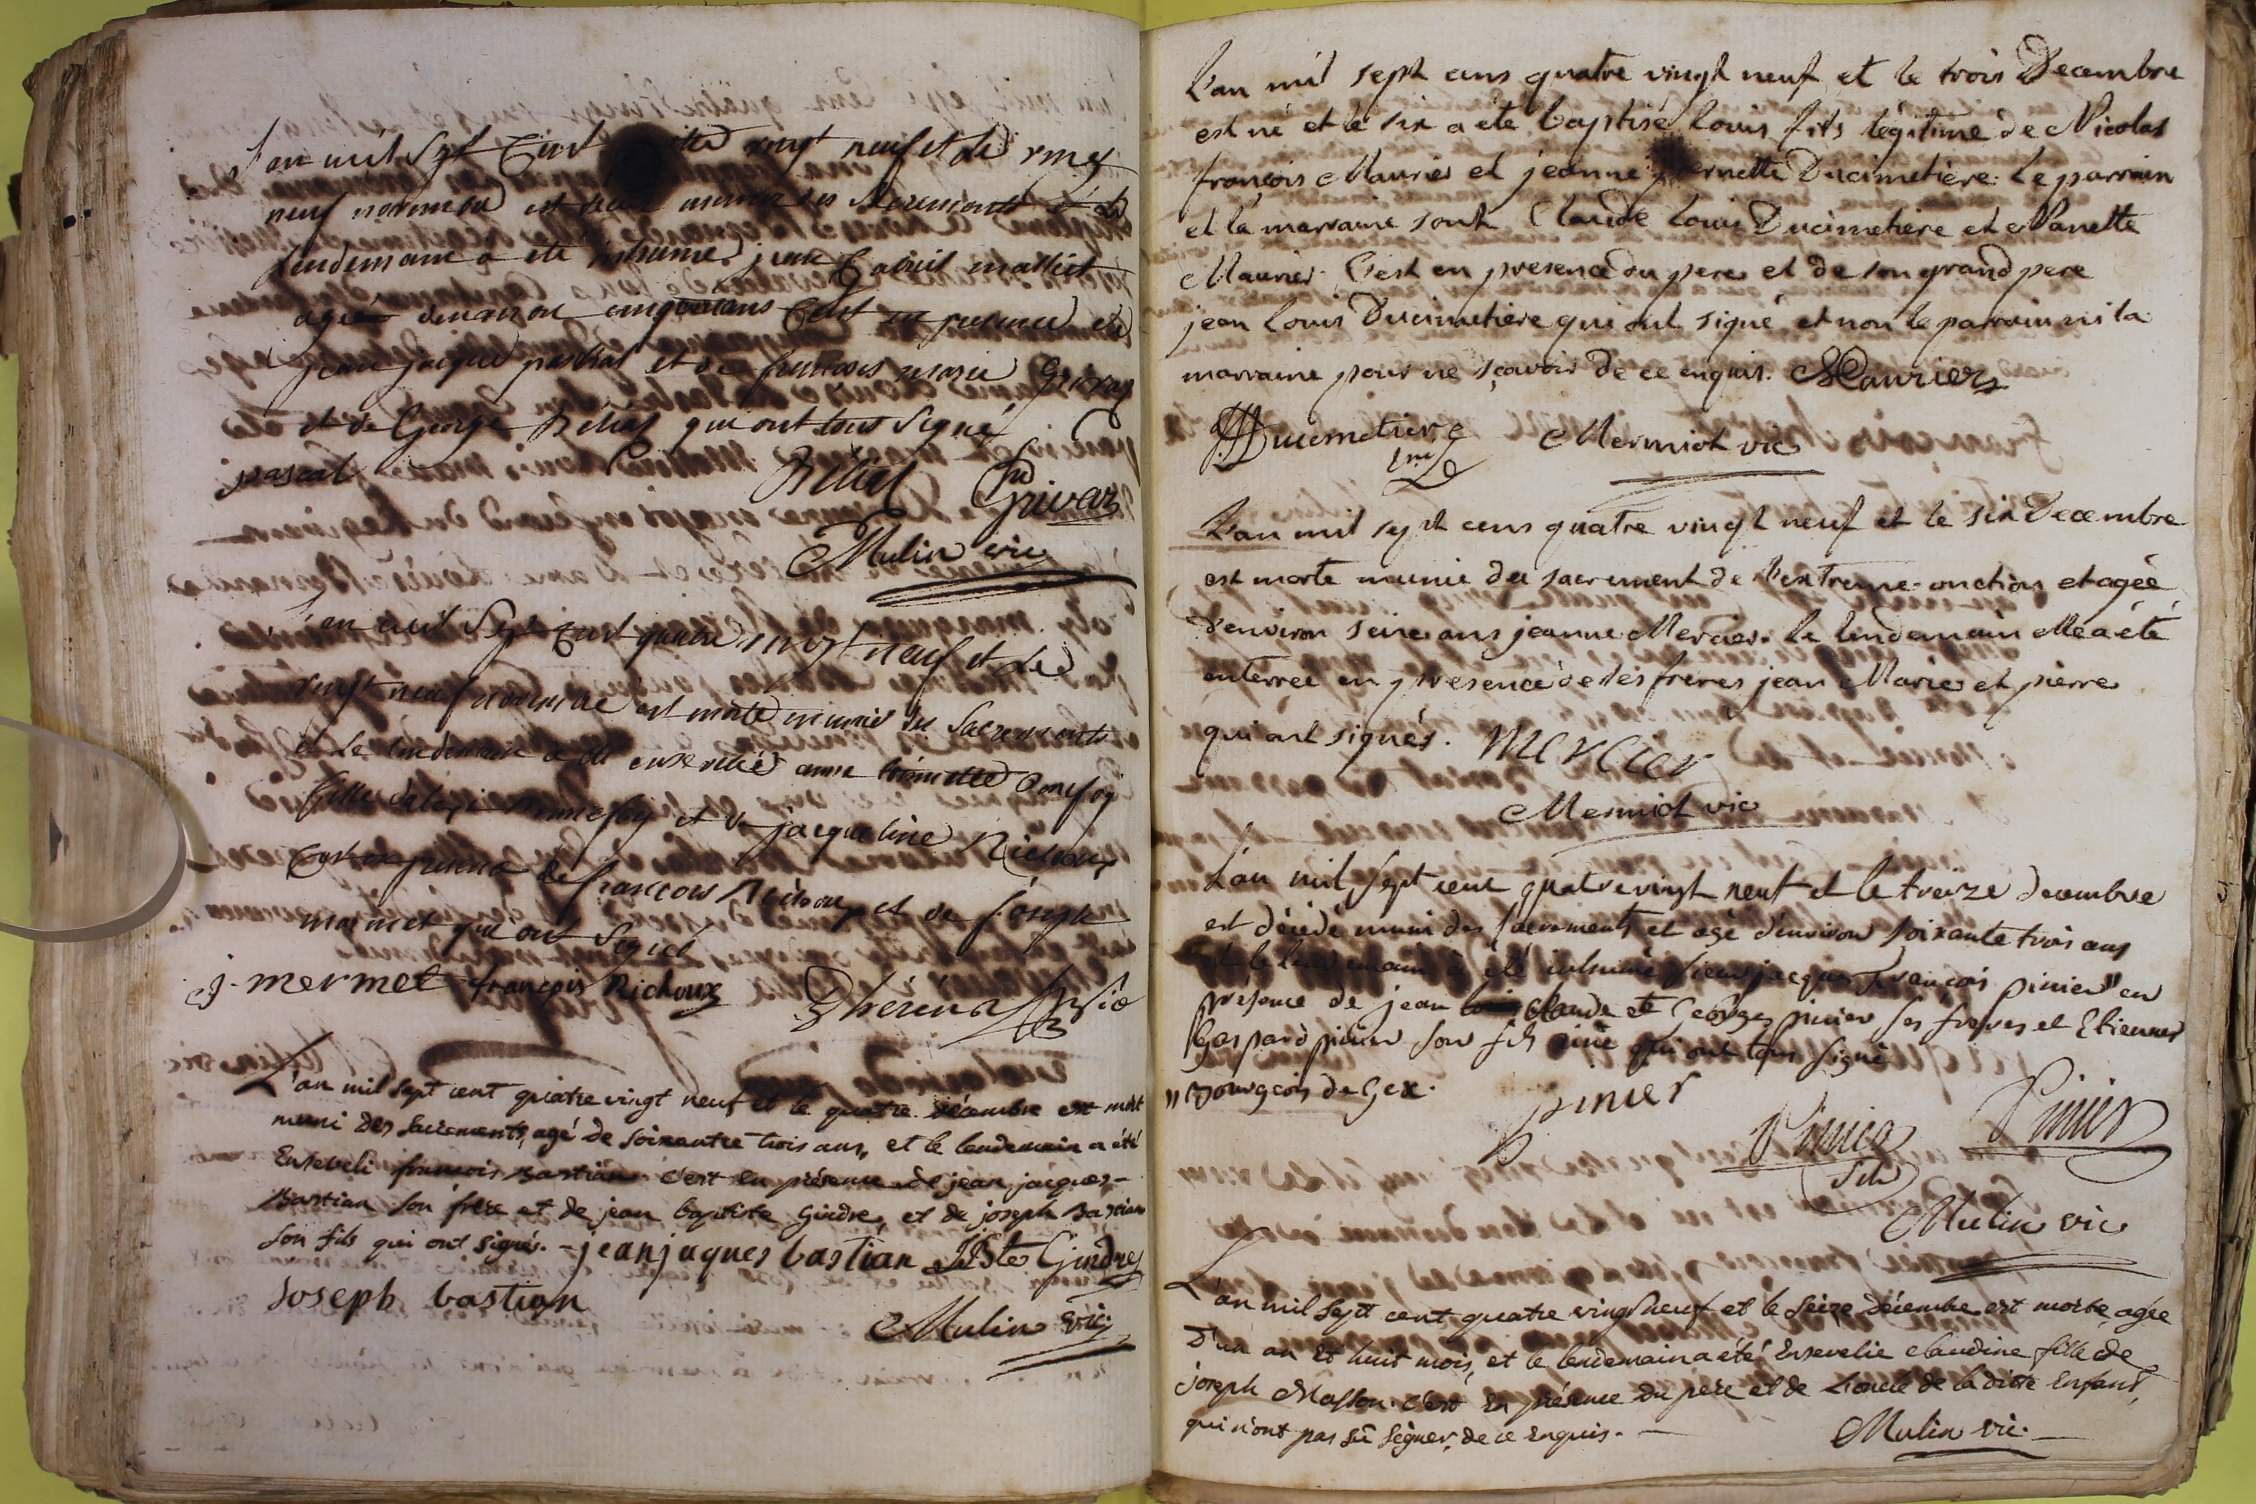 L'an mil sept Cent vingt neuf et le vingt
neuf novembre est munie des Sacrements et le
lendemain a été inhumé jean Gabriel
agé d'environ cinquante ans C'est en presence de
jean jacque pascal et de françois marie Grivaz
et de George Béliat qui ont tous Signé
pascal Béliat Grivaz
Mulin vic
L'an mil Sept Cent quatre vingt neuf et le
vingt neuf novembre est morte munie des Sacrements
et le lendemain a été ensevelie anne
fille et de jacqueline Richoux
C'est en presence de françois Richoux et de joseph
mermet qui ont Signé
j. mermet françois Richoux vic
L'an mil sept cent quatre vingt neuf et le quatre décembre est mort
muni des sacrements, agé de soixante trois ans, et le lendemain a été
Enseveli francois Bastian c'est en présence de jean jacques
Bastian son frère et de jean baptiste Gindre, et de joseph Bastian
son fils qui ont signés. - jean jaques bastian JBte Gindre
Joseph bastian
Mulin vic
L'an mil sept cens quatre vingt neuf et le trois Decembre
est né et le six a été baptisé Louis fils légitime de Nicolas
françois Maurier et jeanne pernette Ducimetière. Le parrain
et la marraine sont Claude Louis Ducimetiere et Nanette
Maurier. C'est en presence du pere et de son grand pere
jean Louis Ducimetière qui ont signé et non le parrain ni la
marraine pour ne sçavoir de ce enquis. Maurier
Ducimetiere Mermiot vic
L'an mil sept cens quatre vingt neuf et le six Decembre
est morte munie du sacrement de l'extreme-onction et agée
d'environ seize ans jeanne Mercier. Le lendemain elle a été
enterrée en presence de ses freres jean Marie et pierre
qui ont signés. Mercier
Mermiot vic
L'an mil sept cent quatre vingt neuf et le treize decembre
est décédé muni des sacrements et agé d'environ soixante trois ans
et le lendemain a été inhumé sieur jacques françois pinier" en
presence de jean claude et Georges pinier ses freres et Etienne
Gaspard pinier son fils ainé qui ont tous signé
" Bourgeois de Gex.
pinier Pinier fils Pinier
Mulin vic
L'an mil sept cent quatre vingt neuf et le seize décembre est morte, agée
D'un an et huit mois, et le lendemain a été Ensevelie claudine fille de
joseph Masson. c'est En présence du père et de L'oncle de la dite Enfant,
qui n'ont pas sû signer, de ce Enquis. -
Mulin vic. -